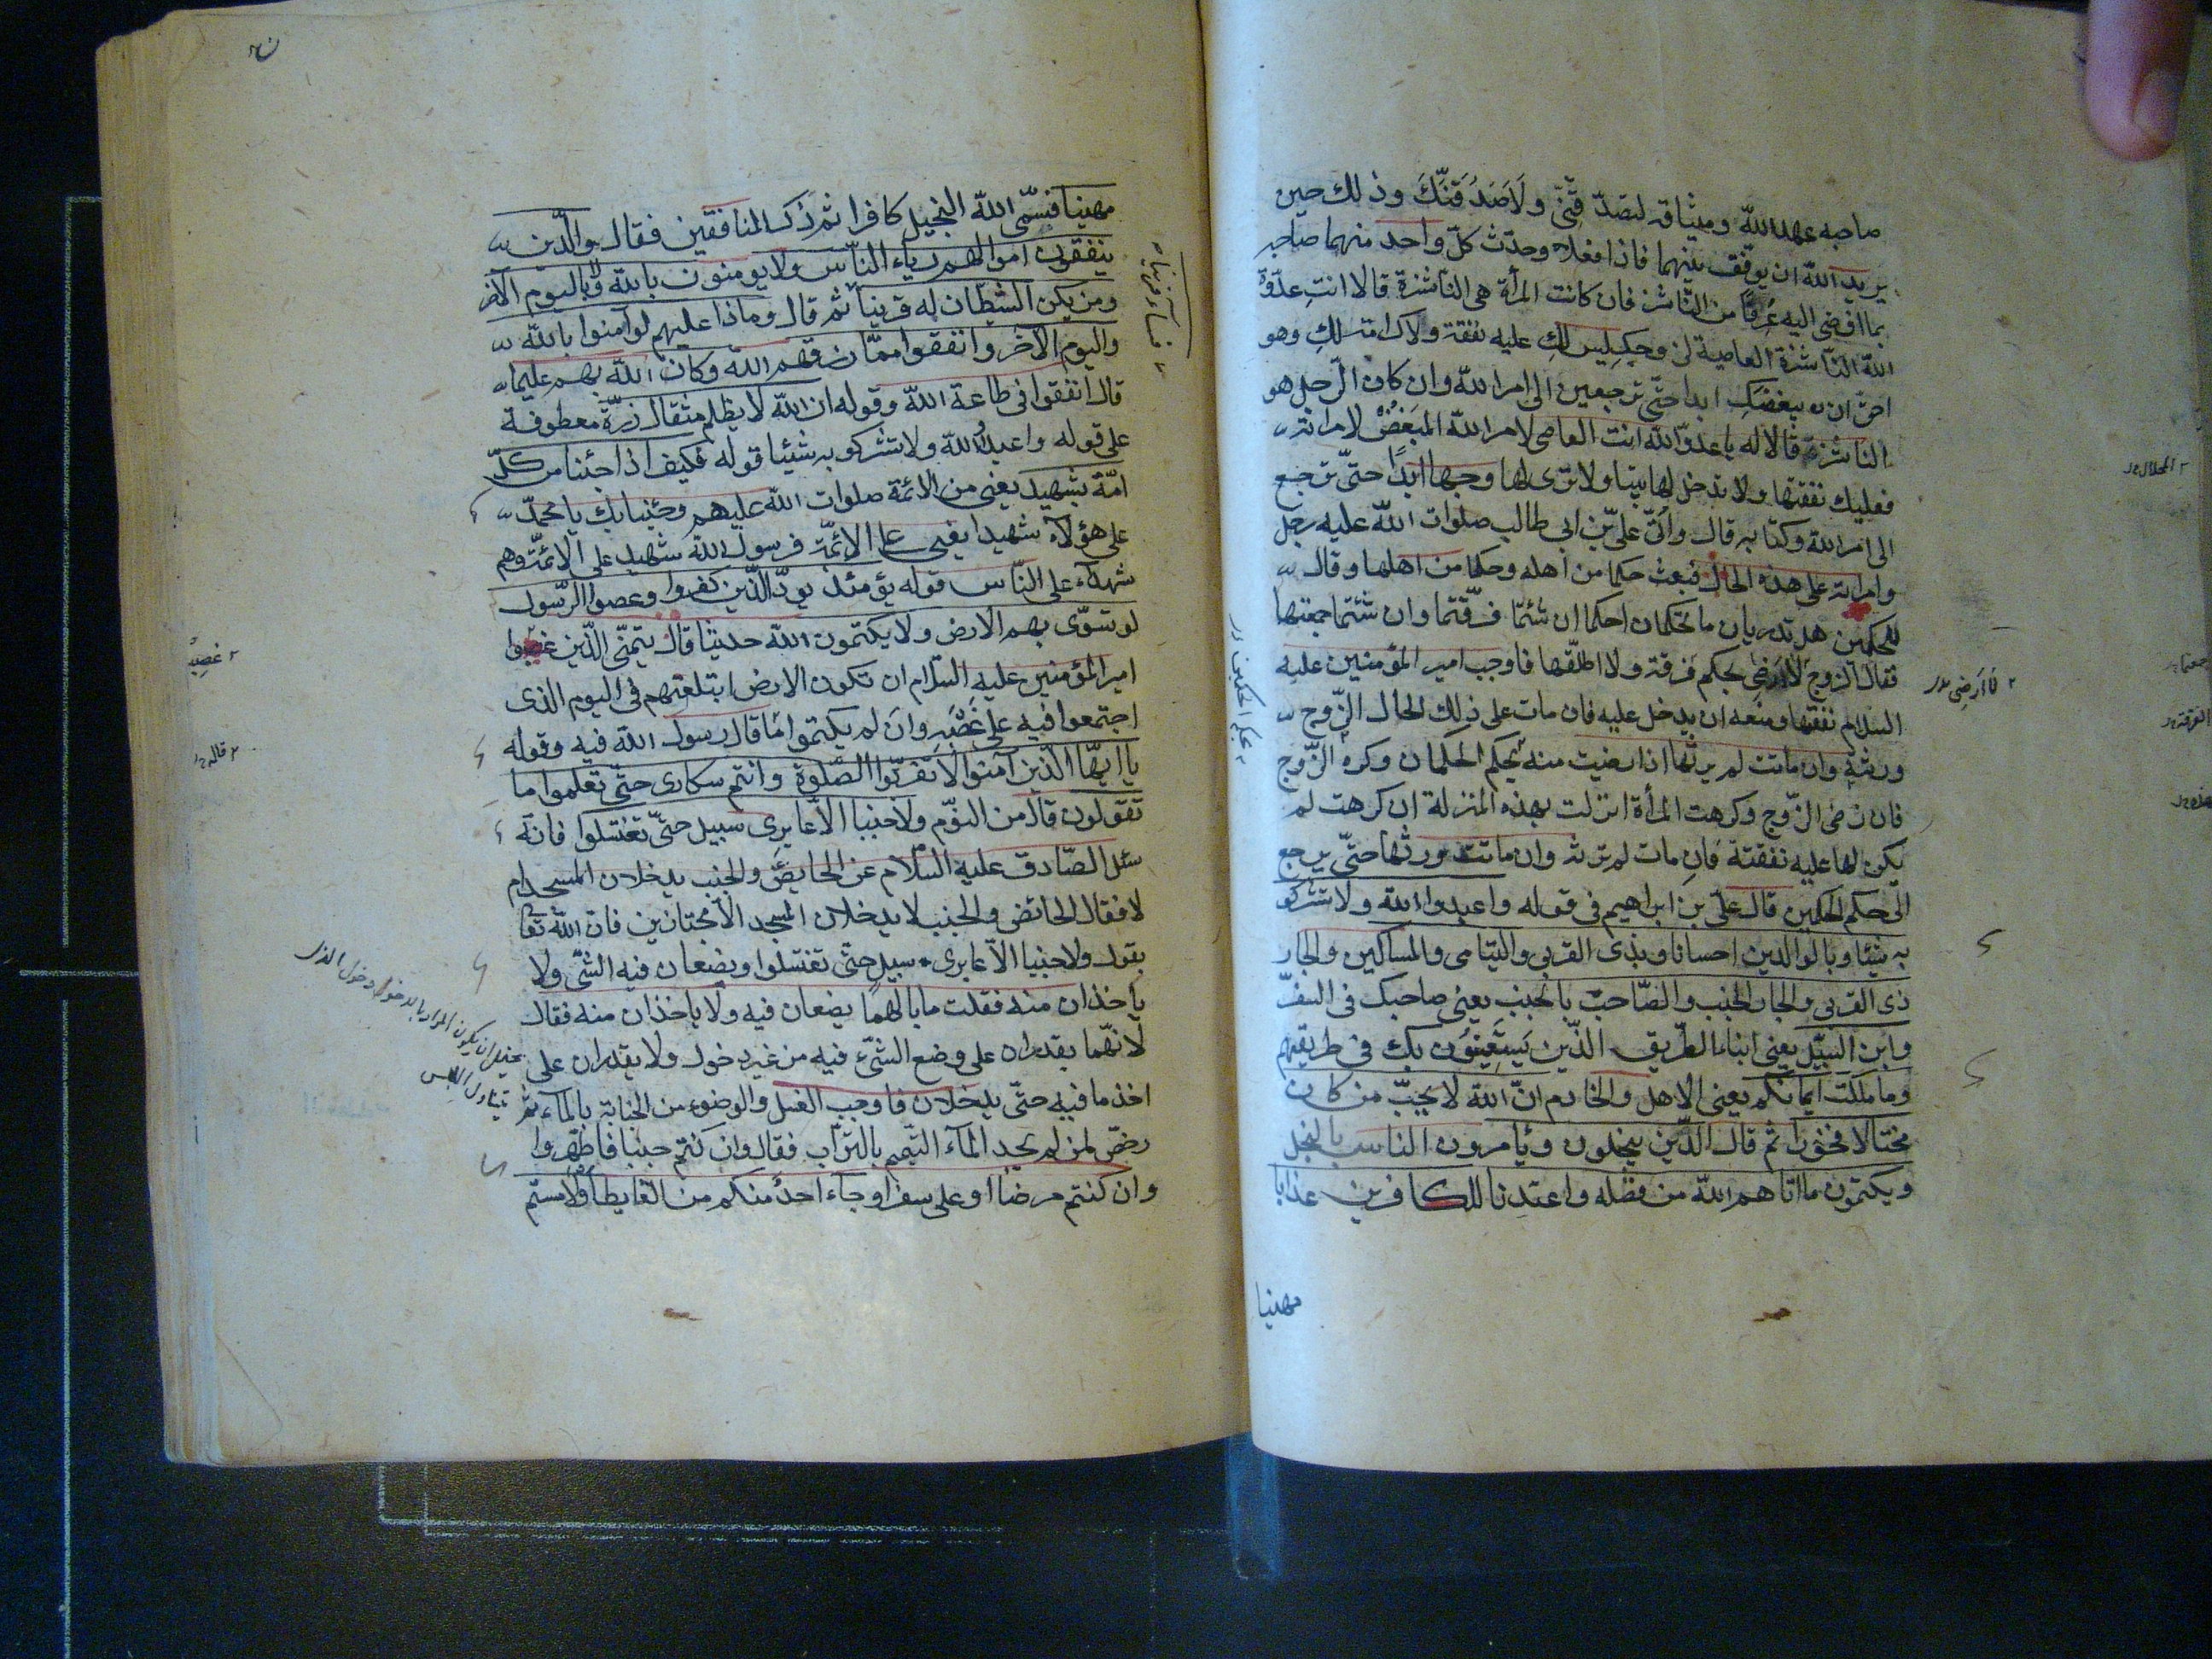 صاحبه عهد الله وميثاقه لتصدّقنّى ولَاَصَدُقَنَّكَ وذلك حين
يريد الله ان يوفّق بينهما فاذا فعلا وحدّث كلّ واحد منهما صاحبه
بما افضى اليه عُرِفَا من النّاشز فان كانت المرأة هى النّاشزة قالا انتِ عدوّة
الله النّاشزة العاصية لزوجكِ ليس لكِ عليه نفقة ولا كرامة لكِ وهو
احقّ ان يبغضكِ ابدا حتّى ترجعين الى امر الله وان كان الرّجل هو
النّاشز قالا له يا عدوّ الله انت العاصى لامر الله المبغض لامراته
فعليك نفقتها ولا تدخل لها بيتا ولا ترى لها وجها ابدًا حتّى ترجع
الى امر الله وكتابه قال واتى علىّ بن ابى طالب صلوات الله عليه رجل
وامراته على هذه الحال فبعث حكما من اهله وحكما من اهلها وقال
للحكمين هل تدريان ما تحكمان احكما ان شئتما فرّقتما وان شئتما جمعتما
فقال الزوج لا ارضى بحكم فرقة ولا اطلّقها فاوجب امير المؤمنين عليه
السلام نفقتها ومنعه ان يدخل عليه فان مات على ذلك الحال الزّوج
ورثته وان ماتت لم يرثها اذا رضيت منه بحكم الحكمان وكره الزّوج
فان رضى الزّوج وكرهت المرأة انزلت بهذه المنزلة ان كرهت لم
يكن لها عليه نفقة فان مات لم ترثه وان ماتت ورثها حتّى يرجع
الى حكم الحكمين قال علىّ بن ابراهيم فى قوله واعبدوا الله ولا تشركو
به شيئا وبالوالدين احسانا وبذى القربى واليتامى والمساكين والجار
ذى القربى والجار الجنب والصّاحب بالجنب يعنى صاحبك فى السفر
وابن السبيل يعنى ابناء الطّريق الذّين يَسْتَعِينُون بك فى طريقهم
وما ملكت ايمانكم يعنى الاهل والخادم انّ الله لا يحبّ من كان
مختالا فخورا ثم قال الذّين يبخلون ويأمرون الناس بالبخل
ويكتمون ما اتاهم الله من فضله واعتدنا للكافرين عذابا
مهينا
لا ارضى
بحكم الحكمين
مهينا فسمّى الله البخيل كافرا ثم ذكر المنافقين فقال والّذين
ينفقون اموالهم رياء النّاس ولا يومنون بالله ولا باليوم الآخر
ومن يكن الشيطان له قرينا ثم قال وماذا عليهم لو آمنوا بالله
واليوم الآخر وانفقوا ممّا رزقهم الله وكان الله بهم عليما
قال انفقوا فى طاعة الله وقوله ان الله لا يظلم مثقال ذرّة معطوفة
على قوله واعبدوا الله ولا تشركو به شيئا قوله فكيف اذا جئنا من كلّ
امّة بشهيد يعنى من الائمة صلوات الله عليهم وجئنا بك يا محمدّ
على هؤلاء شهيدا يعنى على الائمّة فرسول الله شهيد على الائمّة وهم
شهداء على النّاس قوله يؤمئذ يودّ الّذين كفروا وعصوا الرّسول
لو تسوّى بهم الارض ولا يكتمون الله حديثا قال يتمنّى الّذين غصبوا
امير المؤمنين عليه السّلام ان تكون الارض ابتلعتهم فى اليوم الذى
اجتمعوا فيه على غَصْبِه وان لم يكتموا ما قال رسول الله فيه وقوله
يا ايّها الّذين آمنوا لا تقربّوا الصّلوة وانتم سكارى حتّى تعلموا ما
تقولون قال من النوّم ولا جنبا الّا عابرى سبيل حتّى تغتسلوا فانّه
سئل الصّادق عليه السّلام عن الحايض والجنب يدخلان المسجد ام
لا فقال الحائض والجنب لا يدخلان المسجد الّا مجتازين فان الله تعا
يقول ولا جنبا الّا عابرى سبيل حتّى تغتسلوا ويضعان فيه الشّى ولا
ياخذان منه فقلت ما بالهما يضعان فيه ولا ياخذان منه فقال
لانّهما يقدران على وضع الشّىء فيه من غير دخول ولا يقدران على
اخذ ما فيه حتّى يدخلان فاوجب الغسل والوضوء من الجنابة بالماء ثمّ
رخّص لمن لم يجد المآء التّيمم بالترّاب فقال وان كنتم جنبا فاطّهروا
وان كنتم مرضى او على سفر او جآء احد منكم من الغايط او لامستم
فسآء قرينا
غصب
قال
يحتمل ان يكون المراد بالدخول دخول الذى